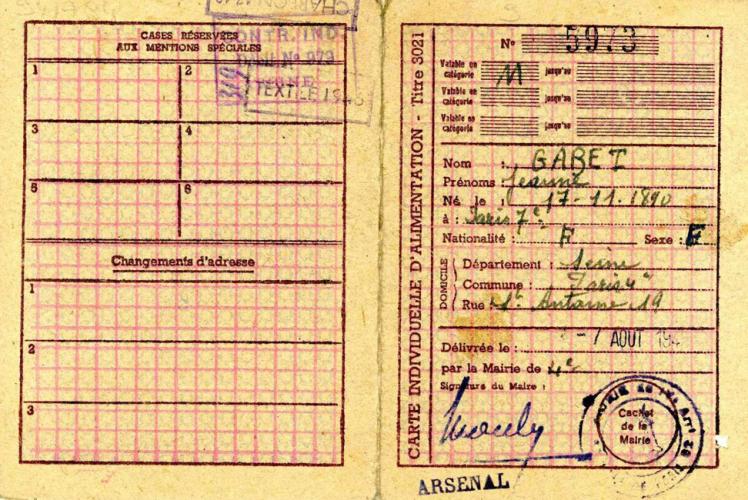 CASES RÉSERVÉES
AUX MENTIONS SPÉCIALES
CHARBON
CONTR. IND
Nº 979
TEXTILE 1946
1
2
3
4
5
6
Changements d'adresse
1
2
3
CARTE INDIVIDUELLE D'ALIMENTATION - Titre 3021
Nº 5973
Valable en catégorie M jusqu'au
Valable en catégorie jusqu'au
Valable en catégorie jusqu'au
Nom : GABET
Prénoms : Jeanne
Né le : 17-11-1890
à : Paris 7e
Nationalité : F Sexe : F
DOMICILE
Département : Seine
Commune : Paris 4e
Rue : St. Antoine 19
Délivrée le : - 7 AOUT 194
par la Mairie de 4e
Signature du Maire :
Cachet
de la
Mairie
ARSENAL